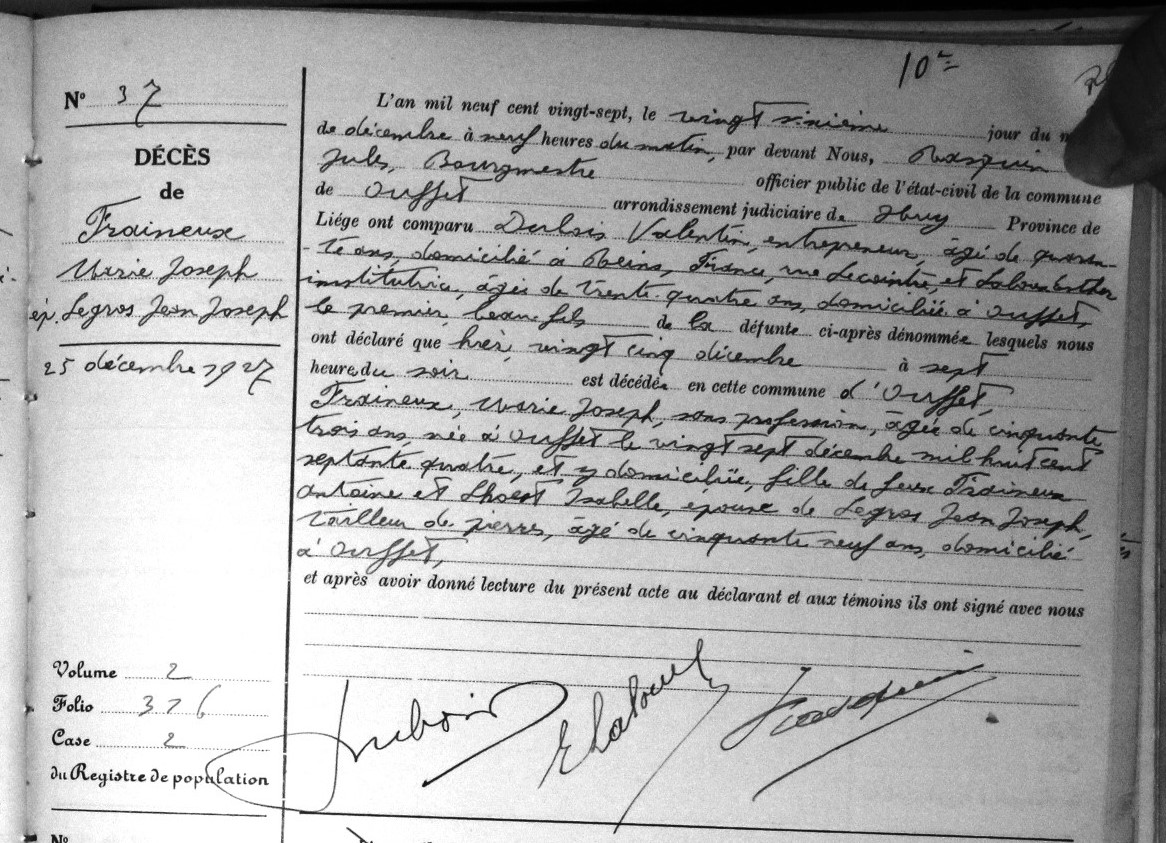 10
N° 37
DÉCÈS
de
Fraineux
Marie Joseph
ép. Legros Jean Joseph
25 décembre 1927
Volume 2
Folio 376
Case 2
du Registre de population
L'an mil neuf cent vingt-sept, le vingt sixième jour du
de décembre à neuf heures du matin, par devant Nous, Rasquin
Jules, Bourgmestre officier public de l'état-civil de la commune
de Ouffet arrondissement judiciaire de Huy Province de
Liége ont comparu Dubois Valentin, entrepreneur, âgé de quaran-
te ans, domicilié à Reims, France, rue Lecointre, et Laloux Esther
institutrice, âgée de trente quatre ans, domiciliée à Ouffet,
le premier, beau fils de la défunte ci-après dénommée lesquels nous
ont déclaré que hier, vingt cinq décembre à sept
heures du soir est décédée en cette commune d'Ouffet,
Fraineux, Marie Joseph, sans profession, âgée de cinquante
trois ans, née à Ouffet le vingt sept décembre mil huit cent
septante quatre, et y domiciliée, fille de feux Fraineux
Antoine et Lhoest Isabelle, épouse de Legros Jean Joseph,
tailleur de pierres, âgé de cinquante neuf ans, domicilié
à Ouffet,
et après avoir donné lecture du présent acte au déclarant et aux témoins ils ont signé avec nous
Dubois ELaloux J Rasquin
N°